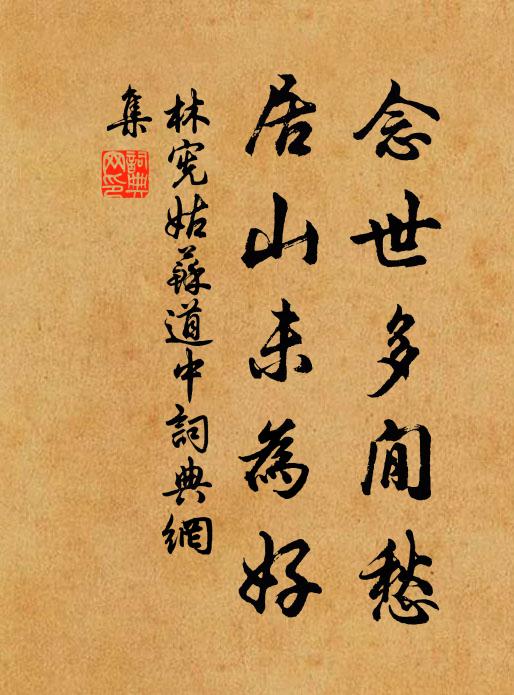 念世多閒愁
居山未為好
林憲姑蘇道中詞典網
集
詞典
网印